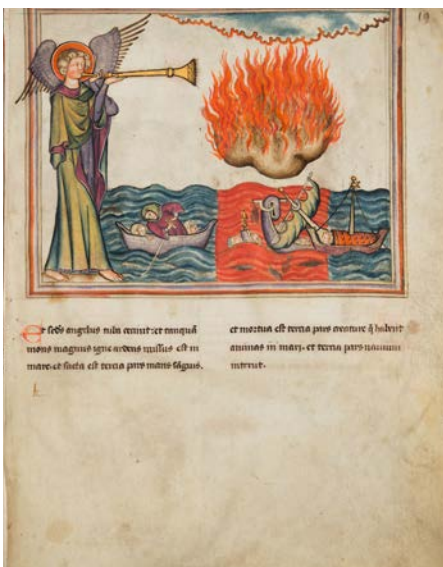 19
Et scds angelus tuba cecinit: et tanquā
mons magnus igne ardens missus est in
mare. et facta est tercia pars maris sāguis.
et mortua est tercia pars creature q̄ habent
animas in mari. et tercia pars nauium
interiit.